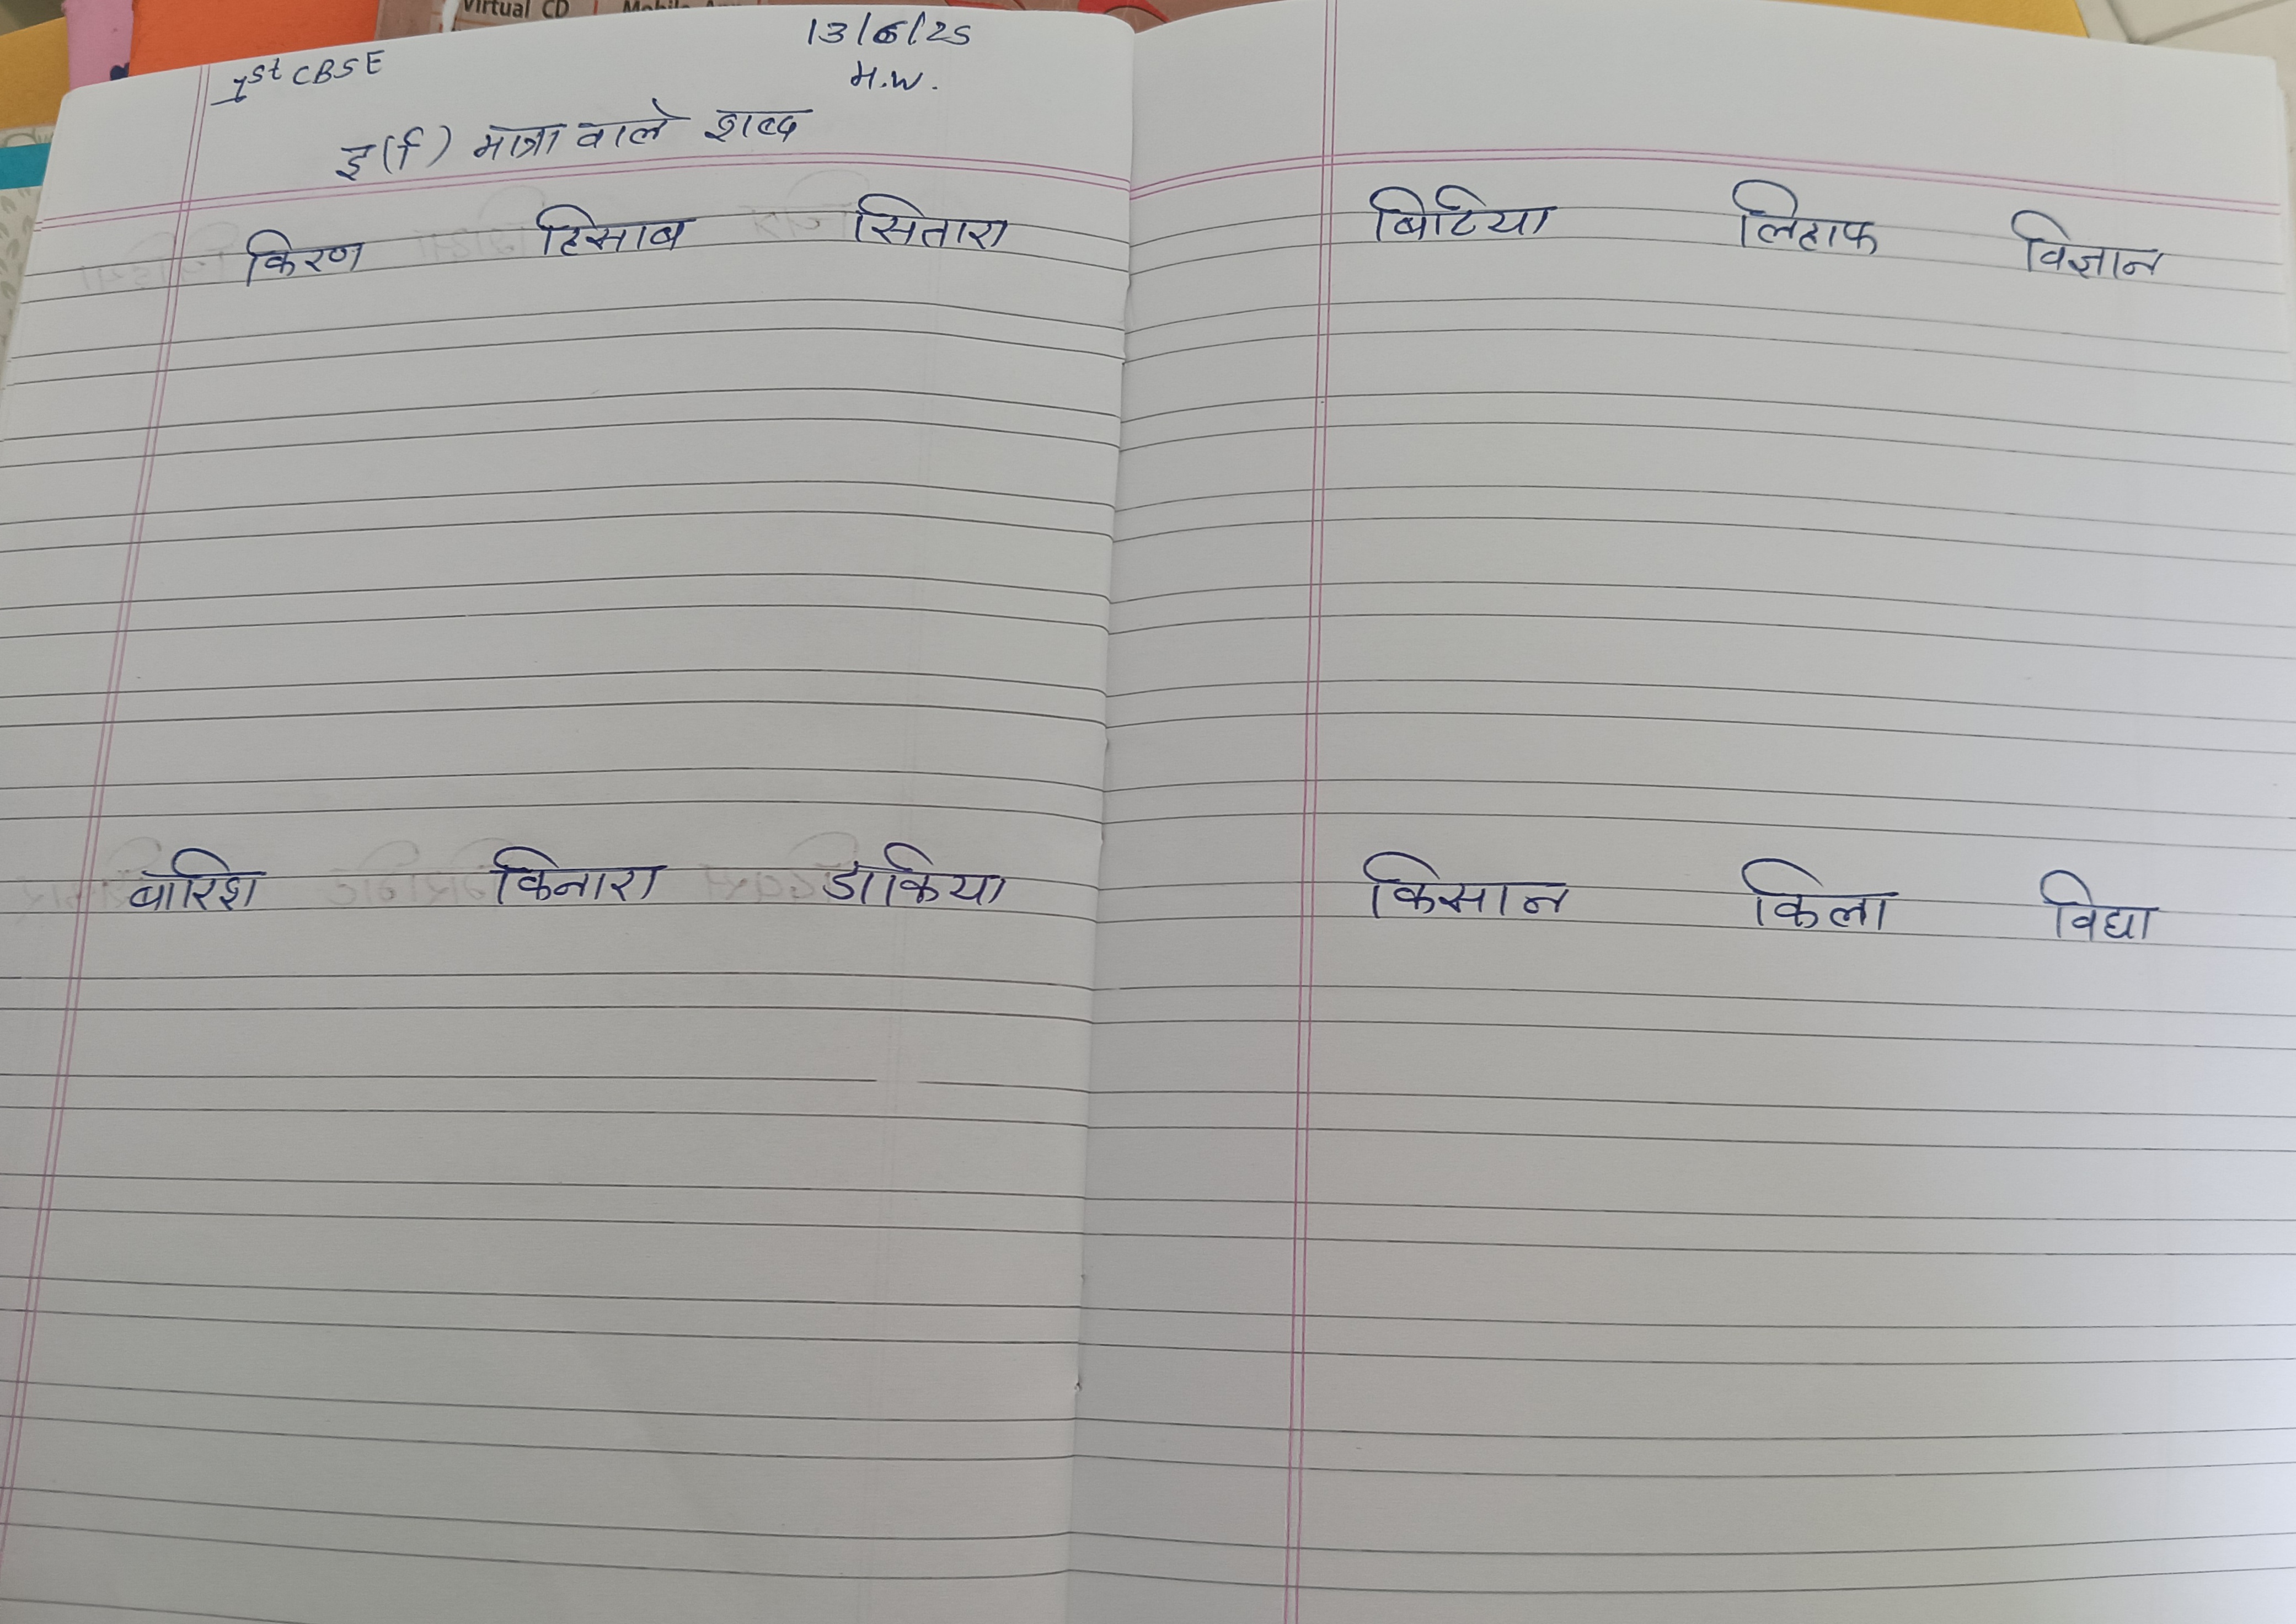 Virtual CD
13/6/25
1st CBSE
H.W.
इ(ि) मात्रा वाले शब्द
किरण हिसाब सितारा
बारिश किनारा डाकिया
बिटिया लिहाफ विज्ञान
किसान किला विद्या